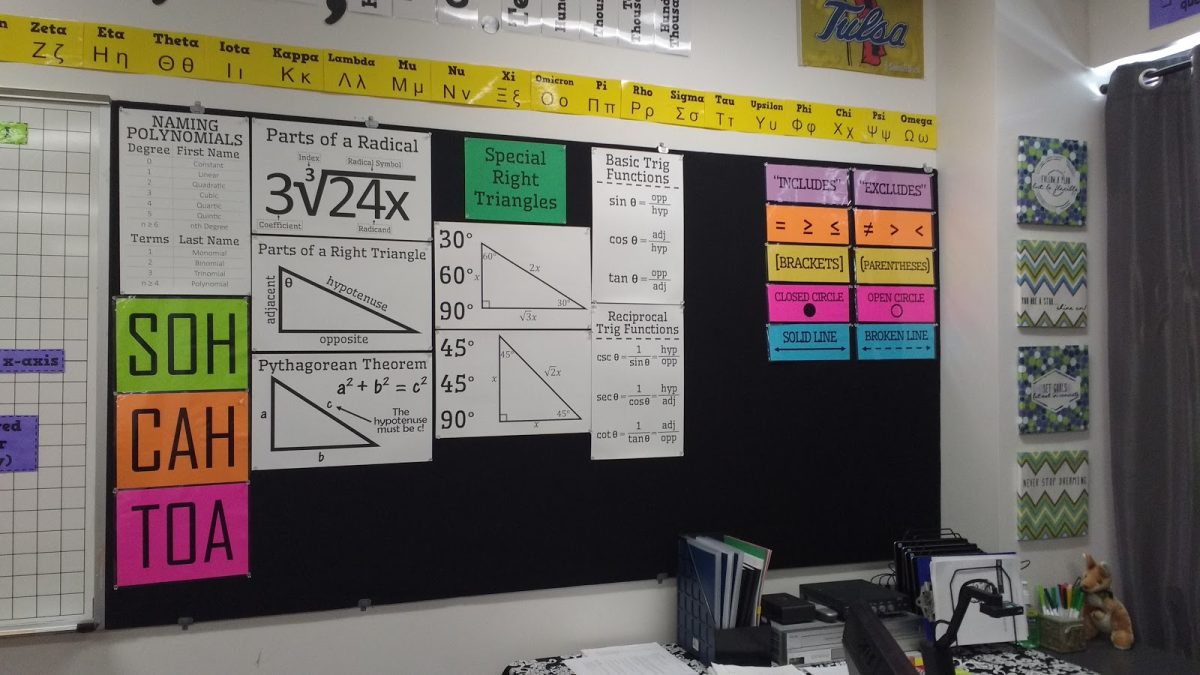 Hund
Thous
Ten
Thous
Hund
Thousa
Tulsa
Zeta Eta Theta Iota Kappa Lambda Mu Nu Xi Omicron Pi Rho Sigma Tau Upsilon Phi Chi Psi Omega
Ζζ Ηη Θθ Ιι Κκ Λλ Μμ Νν Ξξ Οο Ππ Ρρ Σσ Ττ Υυ Φφ Χχ Ψψ Ωω
NAMING
POLYNOMIALS
Degree First Name
0 Constant
1 Linear
2 Quadratic
3 Cubic
4 Quartic
5 Quintic
n ≥ 6 nth Degree
Terms Last Name
1 Monomial
2 Binomial
3 Trinomial
n ≥ 4 Polynomial
SOH
CAH
TOA
x-axis
Parts of a Radical
Index
Radical Symbol
3∛24x
Coefficient
Radicand
Parts of a Right Triangle
θ
adjacent
hypotenuse
opposite
Pythagorean Theorem
a² + b² = c²
a
c
b
The
hypotenuse
must be c!
Special
Right
Triangles
30°
60°
90°
60°
x
2x
30°
√3x
45°
45°
90°
45°
x
√2x
45°
x
Basic Trig
Functions
sin θ = opp/hyp
cos θ = adj/hyp
tan θ = opp/adj
Reciprocal
Trig Functions
csc θ = 1/sin θ = hyp/opp
sec θ = 1/cos θ = hyp/adj
cot θ = 1/tan θ = adj/opp
"INCLUDES" "EXCLUDES"
= ≥ ≤ ≠ > <
[BRACKETS] (PARENTHESES)
CLOSED CIRCLE OPEN CIRCLE
SOLID LINE BROKEN LINE
FOLLOW A PLAN
but be flexible
YOU ARE A STAR...
shine on!
SET GOALS
NEVER STOP DREAMING